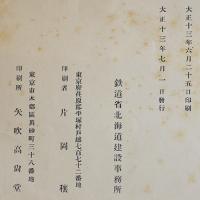 大正十三年六月二十五日印刷
大正十三年七月一日發行
鉄道省北海道建設事務所
東京府荏原郡平塚村戸越七百七十二番地
印刷者 片岡穰
東京市本郷區真砂町三十八番地
印刷所 矢吹高尚堂